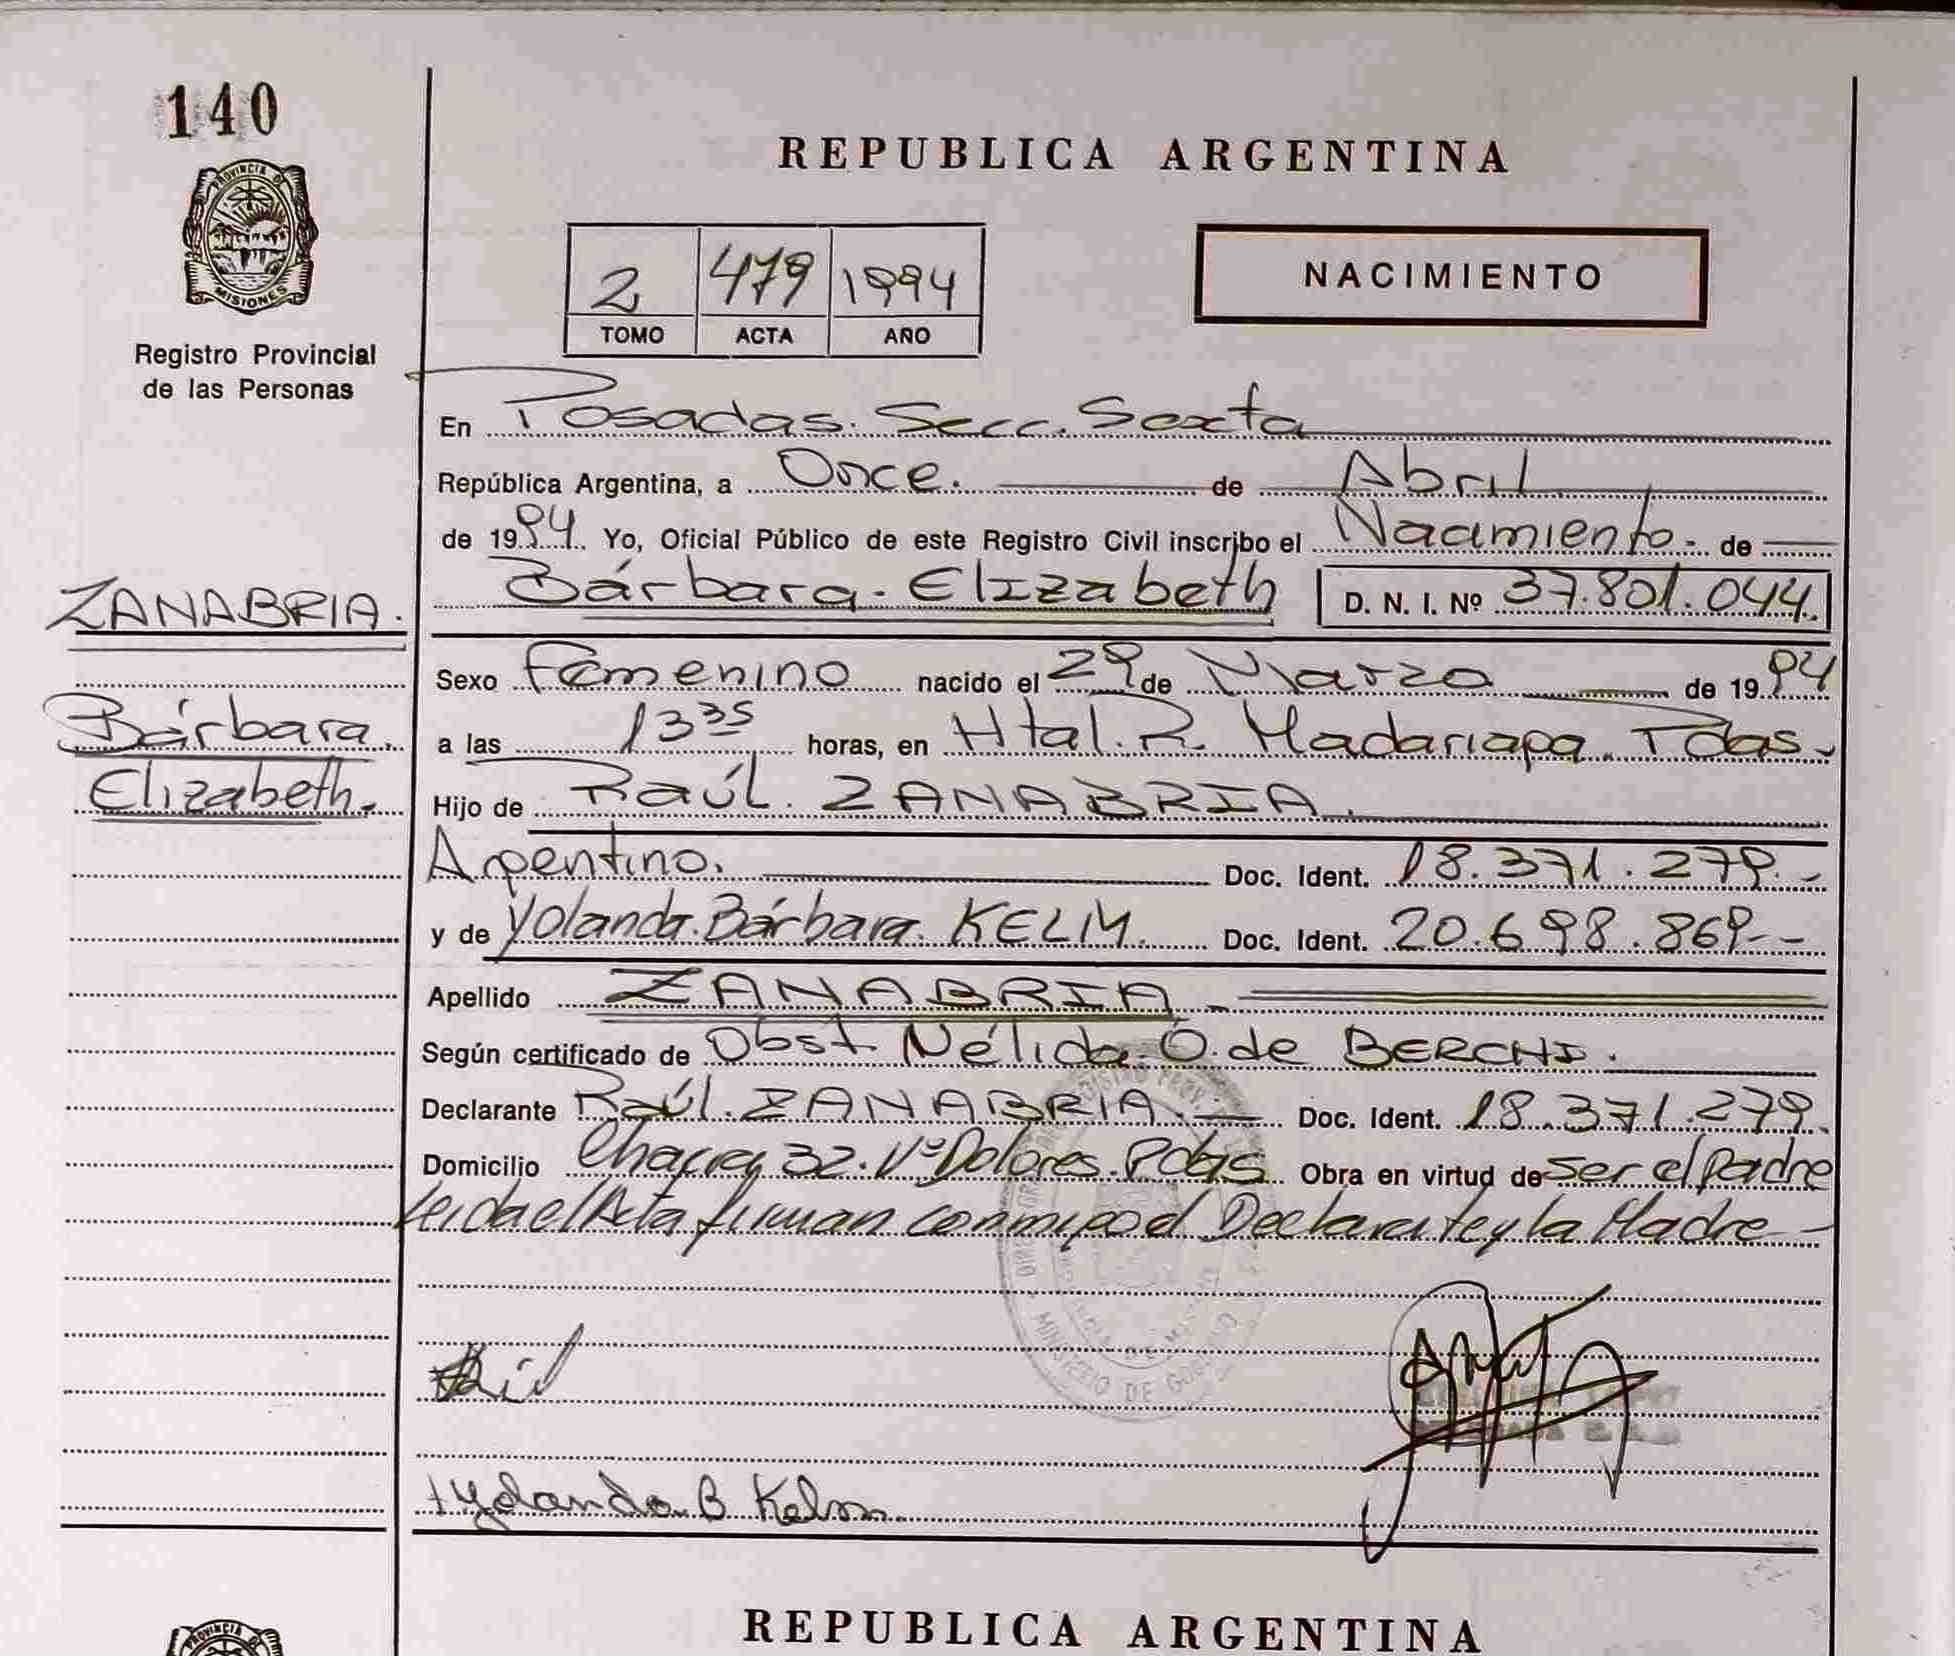 140
PROVINCIA DE
MISIONES
Registro Provincial
de las Personas
REPUBLICA ARGENTINA
2 479 1994
TOMO ACTA AÑO
NACIMIENTO
En Posadas. Secc. Sexta
República Argentina, a Once. de Abril
de 1994. Yo, Oficial Público de este Registro Civil inscribo el Nacimiento.- de
Bárbara. Elizabeth D. N. I. Nº 37.801.044.
ZANABRIA.
Bárbara.
Elizabeth.
Sexo Femenino nacido el 29 de Marzo de 1994
a las 13 35 horas, en Htal. R. Madariaga. Pdas.
Hijo de Raúl. ZANABRIA.
Argentino. Doc. Ident. 18.371.279.-
y de Yolanda. Bárbara. KELM. Doc. Ident. 20.698.869.--
Apellido ZANABRIA.
Según certificado de Obst. Nélida O. de BERCHI.
Declarante Raúl. ZANABRIA. Doc. Ident. 18.371.279.
Domicilio Chacra 32. Vª Dolores. Pdas Obra en virtud de ser el padre
leida el Acta firman conmigo el Declarante y la Madre-
MINISTERIO DE GOBIERNO
Yolanda B Kelm
REPUBLICA ARGENTINA
PROVINCIA DE